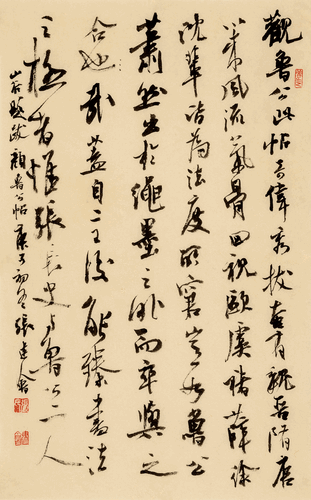 觀魯公此帖奇偉秀拔奄有魏晉隋唐
以來風流氣骨回視歐虞褚薛徐
沈輩皆為法度所窘豈如魯公
蕭然出於繩墨之外而卒與之
合也哉蓋自二王後能臻書法
之極者惟張長史與魯公二人
山谷題跋顏魯公帖庚子初冬張建會